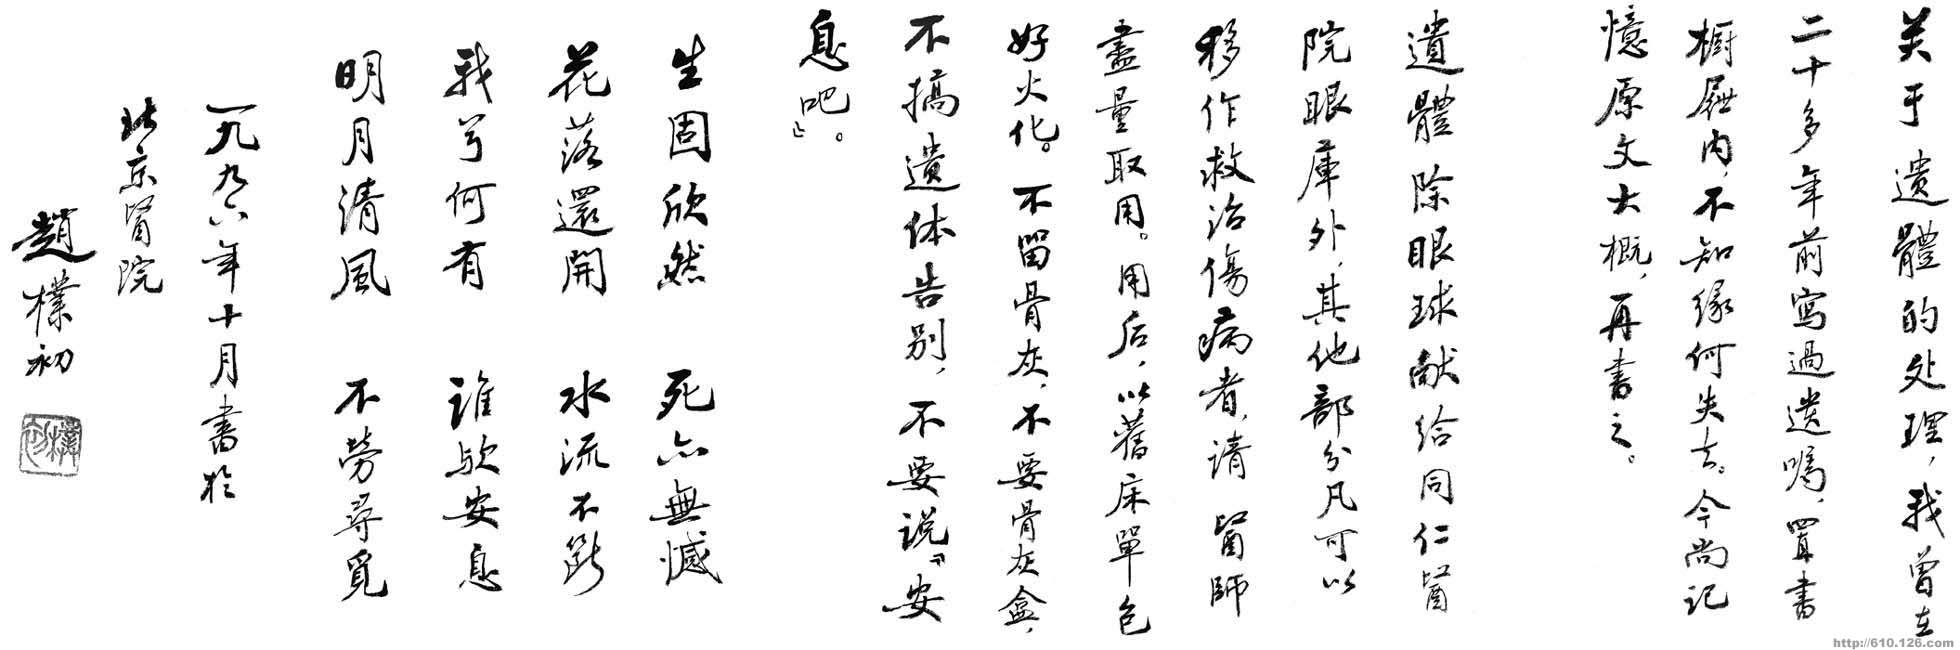 关于遺體的处理，我曾在
二十多年前寫過遺嘱，置書
橱屜内，不知缘何失去。今尚记
憶原文大概，再書之。
遺體除眼球献给同仁醫
院眼庫外，其他部分凡可以
移作救治傷病者，请醫師
盡量取用。用后，以舊床單包
好火化。不留骨灰，不要骨灰盒，
不搞遺体告别，不要说『安
息吧』。
生固欣然 死亦無憾
花落還開 水流不斷
我兮何有 誰歟安息
明月清風 不勞尋覓
一九九六年十月書於
北京醫院
趙樸初
樸初
http://610.126.com